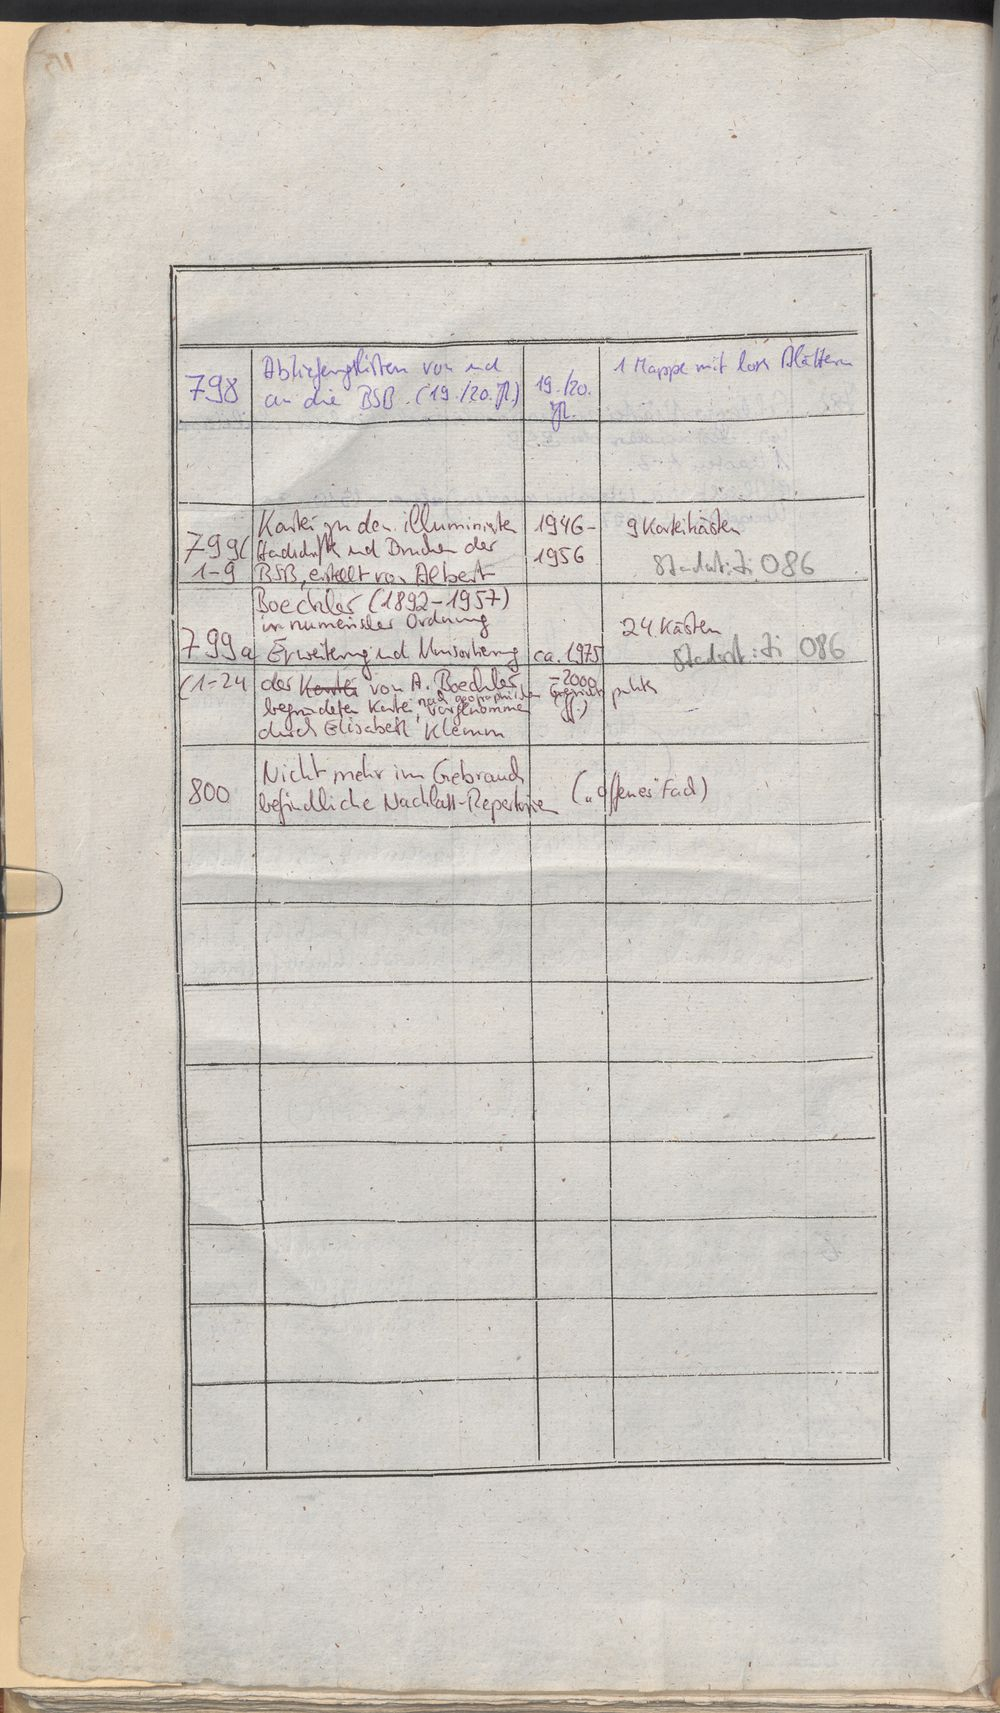 798
Ablieferungslisten von und
an die BSB. (19./20. Jh.)
19./20.
Jh.
1 Mappe mit losen Blättern
799(
1-9
Kartei zu den illuminierten
Handschriften und Drucken der
BSB, erstellt von Albert
Boeckler (1892-1957)
in numerischer Ordnung
1946-
1956
9 Karteikästen
Standort: Zi 086
799a
(1-24
Erweiterung und Umsortierung
der Kartei von A. Boeckler
begründeten Kartei, nach geographischen Gesichtspunkten
vorgenommen
durch Elisabeth Klemm
ca. 1975
-2000
(ff.)
24 Kästen
Standort: Zi 086
800
Nicht mehr im Gebrauch
befindliche Nachlass-Repertorien
("offenes Fach)